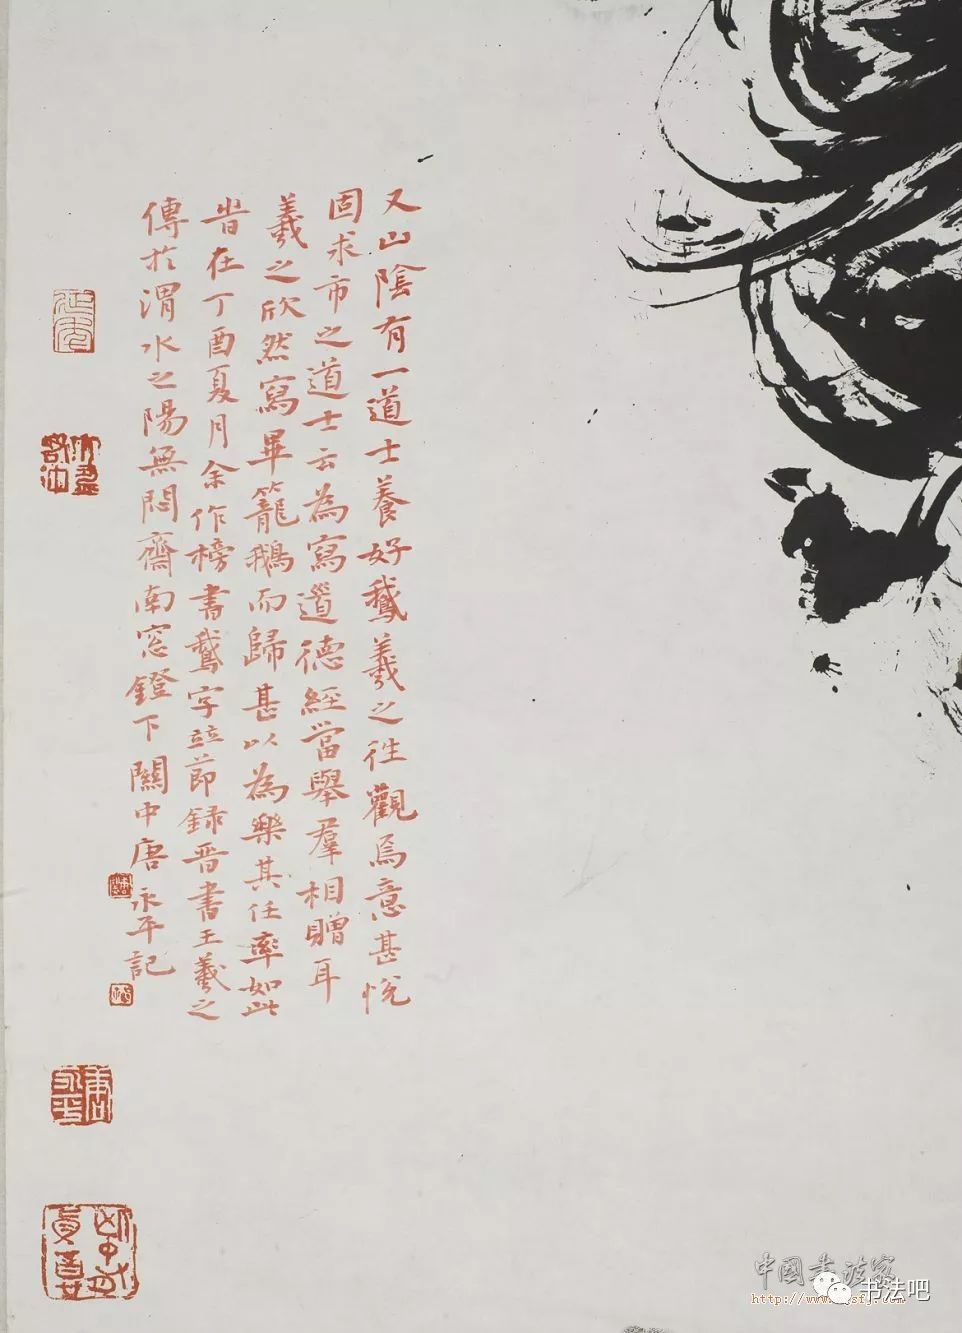 又山陰有一道士養好鵞羲之往觀焉意甚悅
固求市之道士云為寫道德經當舉羣相贈耳
羲之欣然寫畢籠鵝而歸甚以為樂其任率如此
旹在丁酉夏月余作榜書鵞字竝節録晋書王羲之
傳於渭水之陽無悶齋南窓鐙下關中唐永平記
中國書法家
http://www.
书法吧